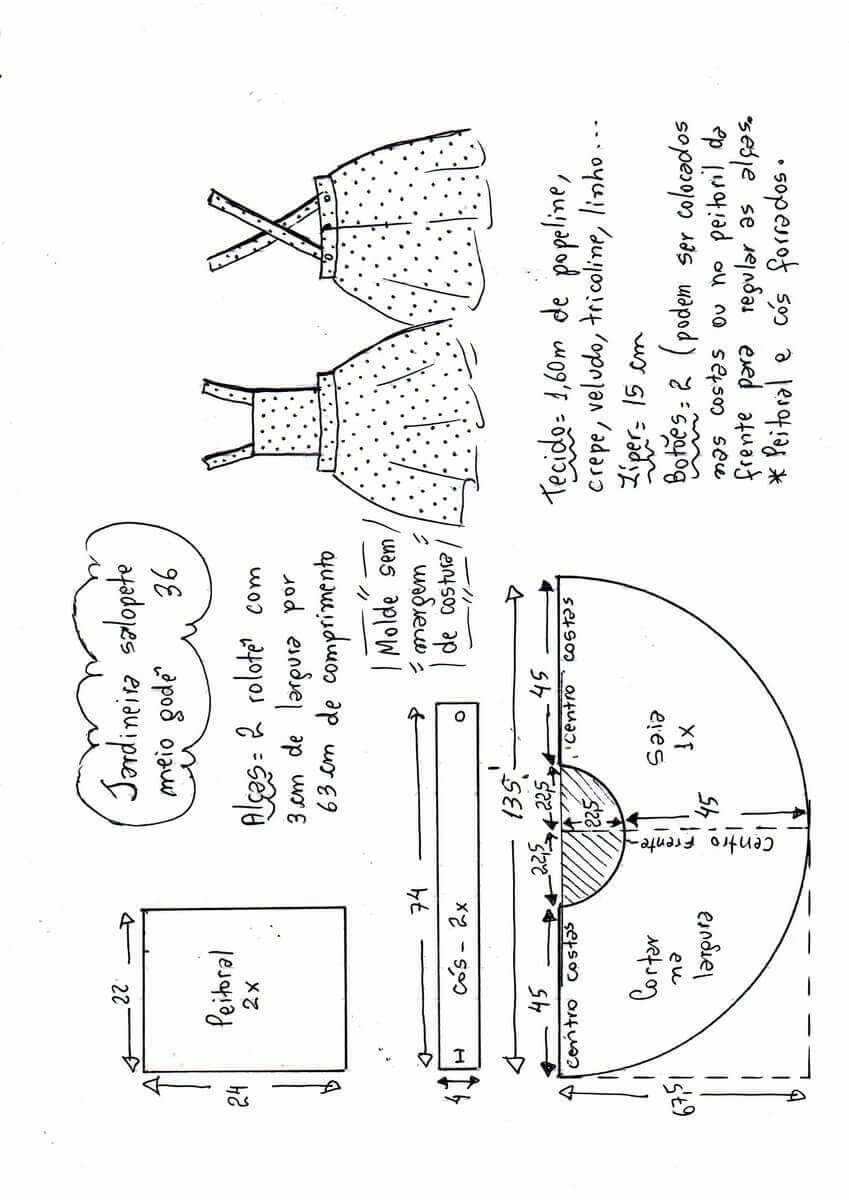 Jardineira salopete
meio godê 36
Alças = 2 rolotês com
3 cm de largura por
63 cm de comprimento
Molde sem
margem
de costura
22
24
Peitoral
2x
74
4
cós - 2x
135
45
22,5
22,5
45
centro costas
centro costas
22,5
45
centro frente
67,5
Cortar
na
largura
Saia
1x
Tecido = 1,60m de popeline,
crepe, veludo, tricoline, linho...
Zíper = 15 cm
Botões = 2 (podem ser colocados
nas costas ou no peitoril da
frente para regular as alças.
* Peitoral e cós forrados.